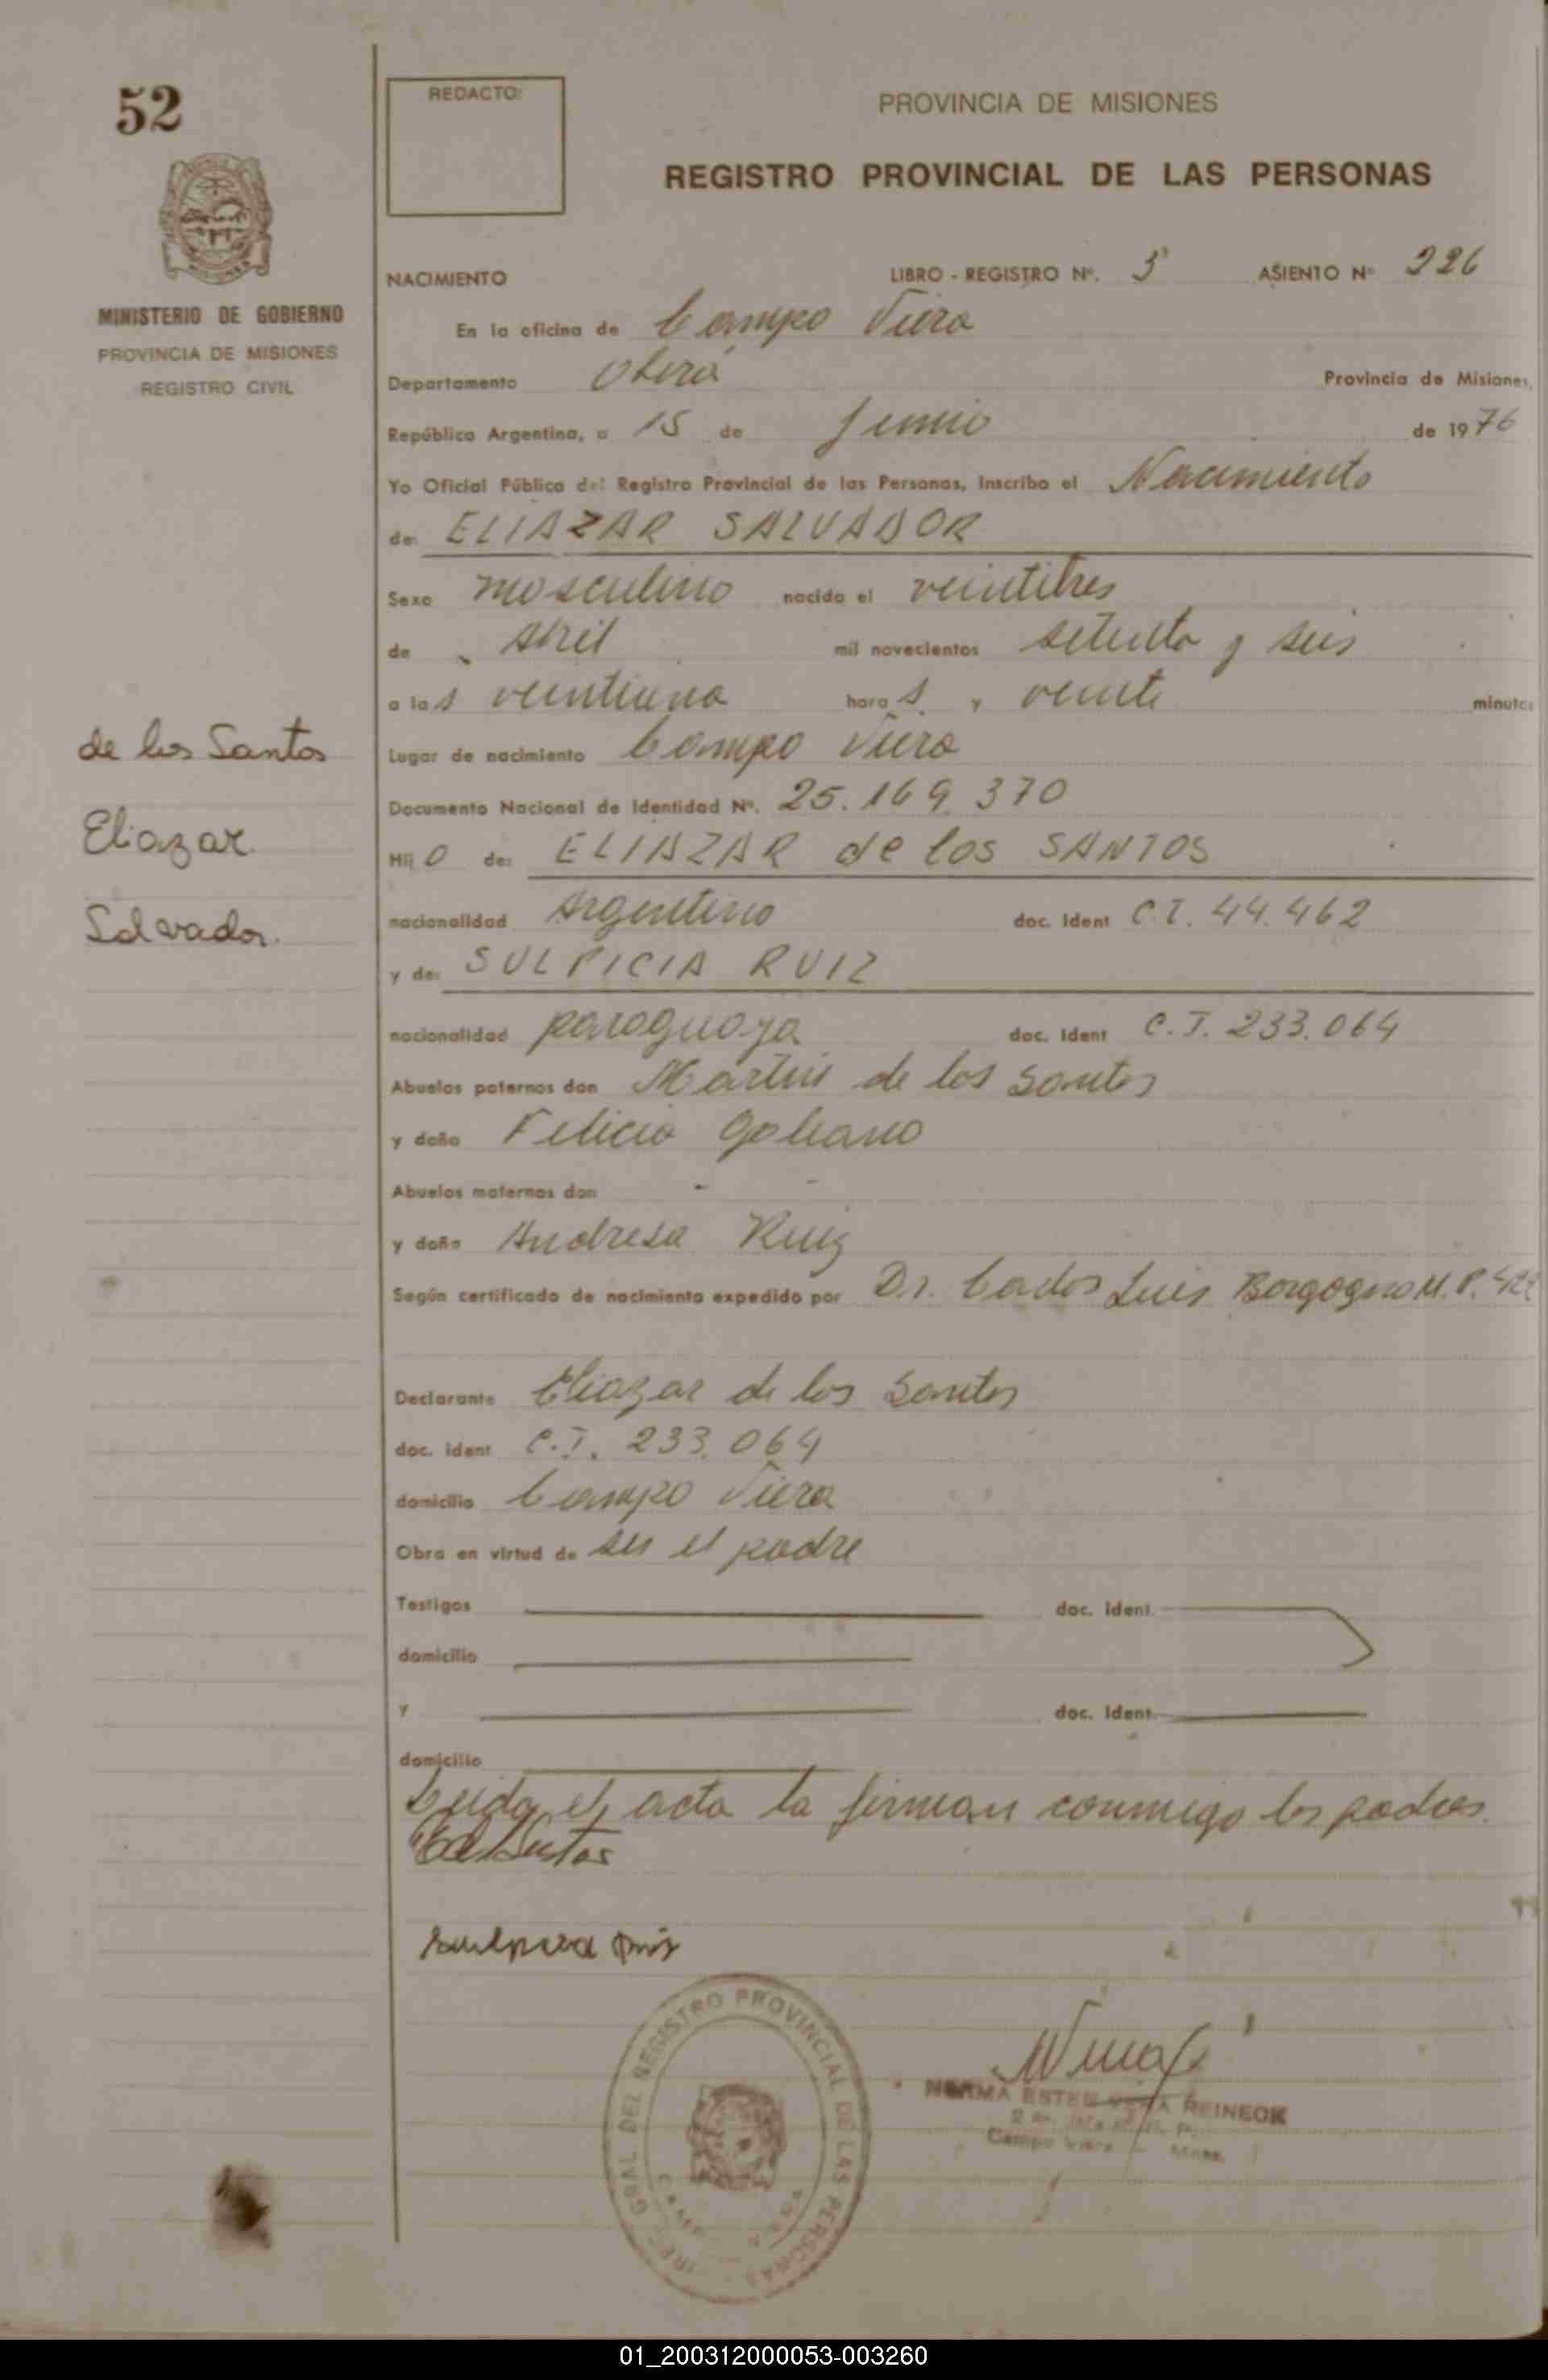 52
REDACTO:
PROVINCIA DE MISIONES
REGISTRO PROVINCIAL DE LAS PERSONAS
MINISTERIO DE GOBIERNO
PROVINCIA DE MISIONES
REGISTRO CIVIL
NACIMIENTO LIBRO - REGISTRO Nº. 3 ASIENTO Nº 226
En la oficina de Campo Viera
Departamento Oberá Provincia de Misiones,
República Argentina, a 15 de Junio de 1976
Yo Oficial Público del Registro Provincial de las Personas, Inscribo el Nacimiento
de: ELIAZAR SALVADOR
Sexo masculino nacido el veintitres
de Abril mil novecientos setenta y seis
a las veintiuna horas y veinte minutos
Lugar de nacimiento Campo Viera
Documento Nacional de Identidad Nº. 25.169.370
Hijo de: ELIAZAR de los SANTOS
nacionalidad Argentino doc. Ident C.I. 44.462
y de: SULPICIA RUIZ
nacionalidad paraguaya doc. Ident C.I. 233.064
Abuelos paternos don Martin de los Santos
y doña Felicia Galeano
Abuelos maternos don -
y doña Andresa Ruiz
Según certificado de nacimiento expedido por Dr. Carlos Luis Borgogno M.P.
Declarante Eliazar de los Santos
doc. ident C.I. 233.064
domicilio Campo Viera
Obra en virtud de ser el padre
Testigos doc. ident.
domicilio
y doc. Ident.
domicilio
Leida el acta la firman conmigo los padres.
Sulpicia Ruiz
de los Santos
Eliazar.
Salvador.
DIREC. GRAL. DEL REGISTRO PROVINCIAL DE LAS PERSONAS
NORMA ESTER VERA REINECK
Campo Viera - Mnes.
01_200312000053-003260